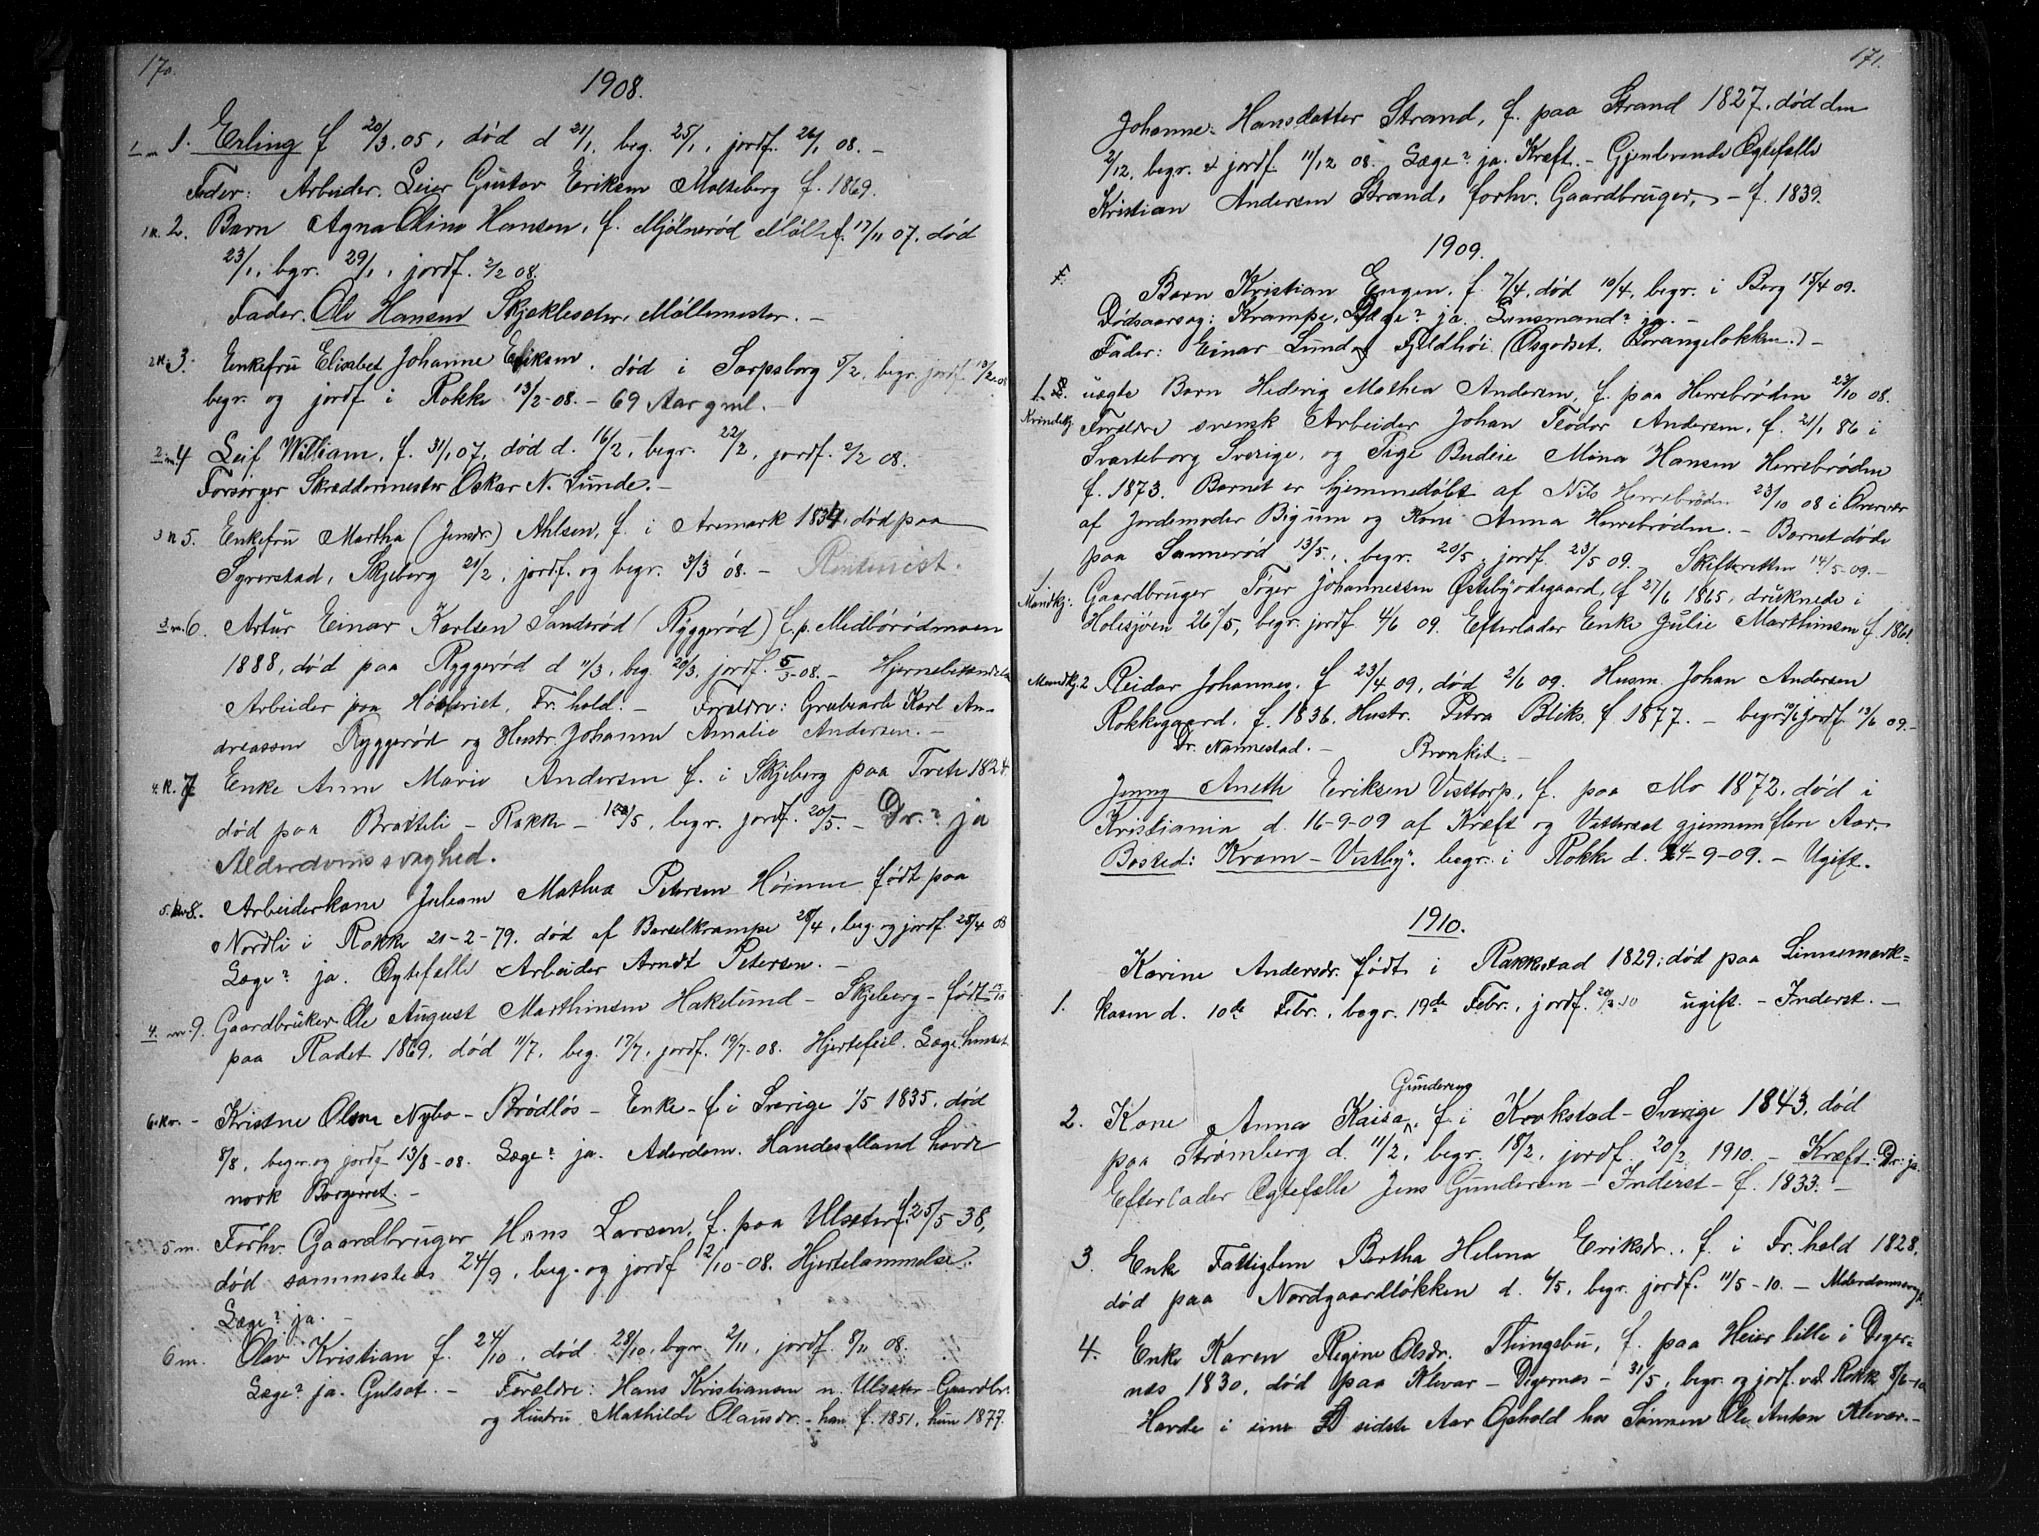 170.
1908.
1 m 1. Erling f 20/3 05, død d 21/1, beg. 25/1, jordf. 26/1 08. –
Fader: Arbeider Leier Gustav Eriksen Molteberg f. 1869.
1 K. 2. Barn Agna Oline Hansen, f. Mjølnerød Mølle f. 17/11 07, død
23/1, begr. 29/1, jordf. 2/2 08.
Fader. Ole Hansen Skjeklesæter, Møllemester. –
2 K 3. Enkefru Elisabet Johanne Eriksen, død i Sarpsborg 5/2, begr. jordf. 13/2-08
begr. og jordf i Rokke 13/2-08. – 69 Aar gml. –
2 m 4 Leif William, f. 31/1 07, død d. 16/2, begr. 22/2, jordf. 2/2 08.
Forsørger Skræddermester Oskar N. Lunde. –
3 K 5. Enkefru Martha (Jensdr.) Ahlsen, f. i Aremark 1834, død paa
Syverstad, Skjeberg 21/2, jordf. og begr. 3/3 08. – Rentenist.
3 m. 6. Artur Einar Karlsen Sanderød (Ryggerød) f. p. Medbørødmoen
1888, død paa Ryggerød d 11/3, beg. 20/3, jordf. 5/3-08. – Hjernebetændelse
Arbeider paa Høvleriet, Fr.hald. – Forældre: Grubearb. Karl An-
dreassen Ryggerød og Hustr. Johanne Amalie Andersen. –
4. K. 7 Enke Anne Marie Andersen f. i Skjeberg paa Tvete 1824.
død paa Bratteli – Rokke – /5, begr. jordf. 20/5. – Dr.? ja
Alderdomssvaghed.
5. kv 8. Arbeiderkone Juliane Mathea Petersen Høiune født paa
Nordli i Rokke 21-2-79. død af Barselkrampe 28/4, beg. og jordf. 28/4 08
Læge? ja. Ægtefælle Arbeider Arndt Petersen. –
4. m. 9. Gaardbruker Ole August Marthinsen Hakelund – Skjeberg – født 13/10
paa Radet 1869, død 11/7, beg. 17/7, jordf. 19/7-08. Hjertefeil. Læge: hentet
6. kv. – Kristine Olsen Nybo – Brødløs – Enke – f i Sverige 1/5 1835, død
8/8, begr. og jordf 13/8-08. Læge? ja. Aderdom. Handes Mand havde
norsk Borgerret. –
5 m. Forhv. Gaardbruger Hans Larsen, f. paa Ulsæter f. 25/5 38,
død sammesteds 24/9, beg. og jordf 2/10-08. Hjertelammelse.
Læge? ja. –
6 m. Olav Kristian f. 24/10, død 28/10, begr 2/11, jordf. 8/11 08.
Læge? ja. Gulsot. – Forældre: Hans Kristiansen n. Ulsæter – Gaardbr.
og Hustru Mathilde Olausdr. – han f. 1851, hun 1877.
171.
Johanne Hansdatter Strand, f. paa Strand 1827, død den
2/12, begr. & jordf. 11/12 08. Læge? ja. Kræft. – Gjenlevende Ægtefælle
Kristian Andersen Strand, forhv. Gaardbruger, – f. 1839.
1909.
F. Barn Kristian Engen, f. 7/4, død 10/4, begr. i Berg 15/4 09.
Dødsaarsag: Krampe, Læge? ja. Lensmand? ja. –
Fader: Einar Lund Fjeldhøi (Osgodset, Thorangeløkken.) –
1. Kvindekj. uægte Barn Hedevig Mathea Andersen, f. paa Herrebrøden 23/10 08.
Forældre svensk Arbeider Johan Teodor Andersen, f. 21/1 86 i
Svarteborg Sverige, og Pige Budeie Mina Hansen Herrebrøden
f. 1873. Barnet er hjemmedøbt af Nils Herrebrøden 23/10 08 i Overvær
af Jordemoder Bigum og Kone Anna Herrebrøden. – Barnet døde
paa Sannerød 13/5, begr. 20/5, jordf. 23/5 09. Skifteretten 14/5-09. –
1 Mandkj: Gaardbruger Tøger Johannessen Østebyødegaard, f 27/6 1865, druknede i
Holesjøen 26/5, begr. jordf. 4/6 09. Efterlader Enke Julie Marthinsen f. 1861
Mandkj. 2 Reidar Johannes, f 23/4 09, død 2/6 09. Husm. Johan Andersen
Rokkegaard, f. 1836. Hustr. Petra Bliks. f. 1877. – begr. 10/6 jordf. 13/6 09. –
Dr. Nannestad. – Bronkit. –
Jenny Aneth Eriksen Visttorp, f. paa Mo 1872, død i
Kristiania d. 16-9-09 af Kræft og Vattersot gjennem flere Aar.
Bosted: Kram – Vistby. begr. i Rokke d. 24-9-09. – Ugift.
1910.
Karine Andersdr. født i Rakkestad 1829; død paa Linnemark-
1. kasen d. 10de Febr., begr. 19de Febr., jordf. 20/2-10 ugift. – Inderst. –
Gundersen
2. Kone Anna Kaisa, f. i Krokstad – Sverige 1843, død
paa Strømberg d. 11/2, begr. 18/2, jordf. 20/2 1910. – Kræft. Dr: ja.
Efterlader Ægtefælle Jens Gundersen – Inderst – f. 1833. –
3. Enke Fattiglem Bertha Helena Eriksdr., f. i Fr.hald 1828,
død paa Nordgaardløkken d. 6/5, begr. jordf. 11/5-10. – Alderdomssvagh.
4. Enke Karen Regine Olsdr. Thingsbu, f. paa Heier lille i Deger-
næs 1830, død paa Klevar – Degernes – 31/5, begr. og jordf. ved Rokke 8/6-10
Havde i sine sidste Aar Ophold hos Sønnen Ole Anton Klevar. –